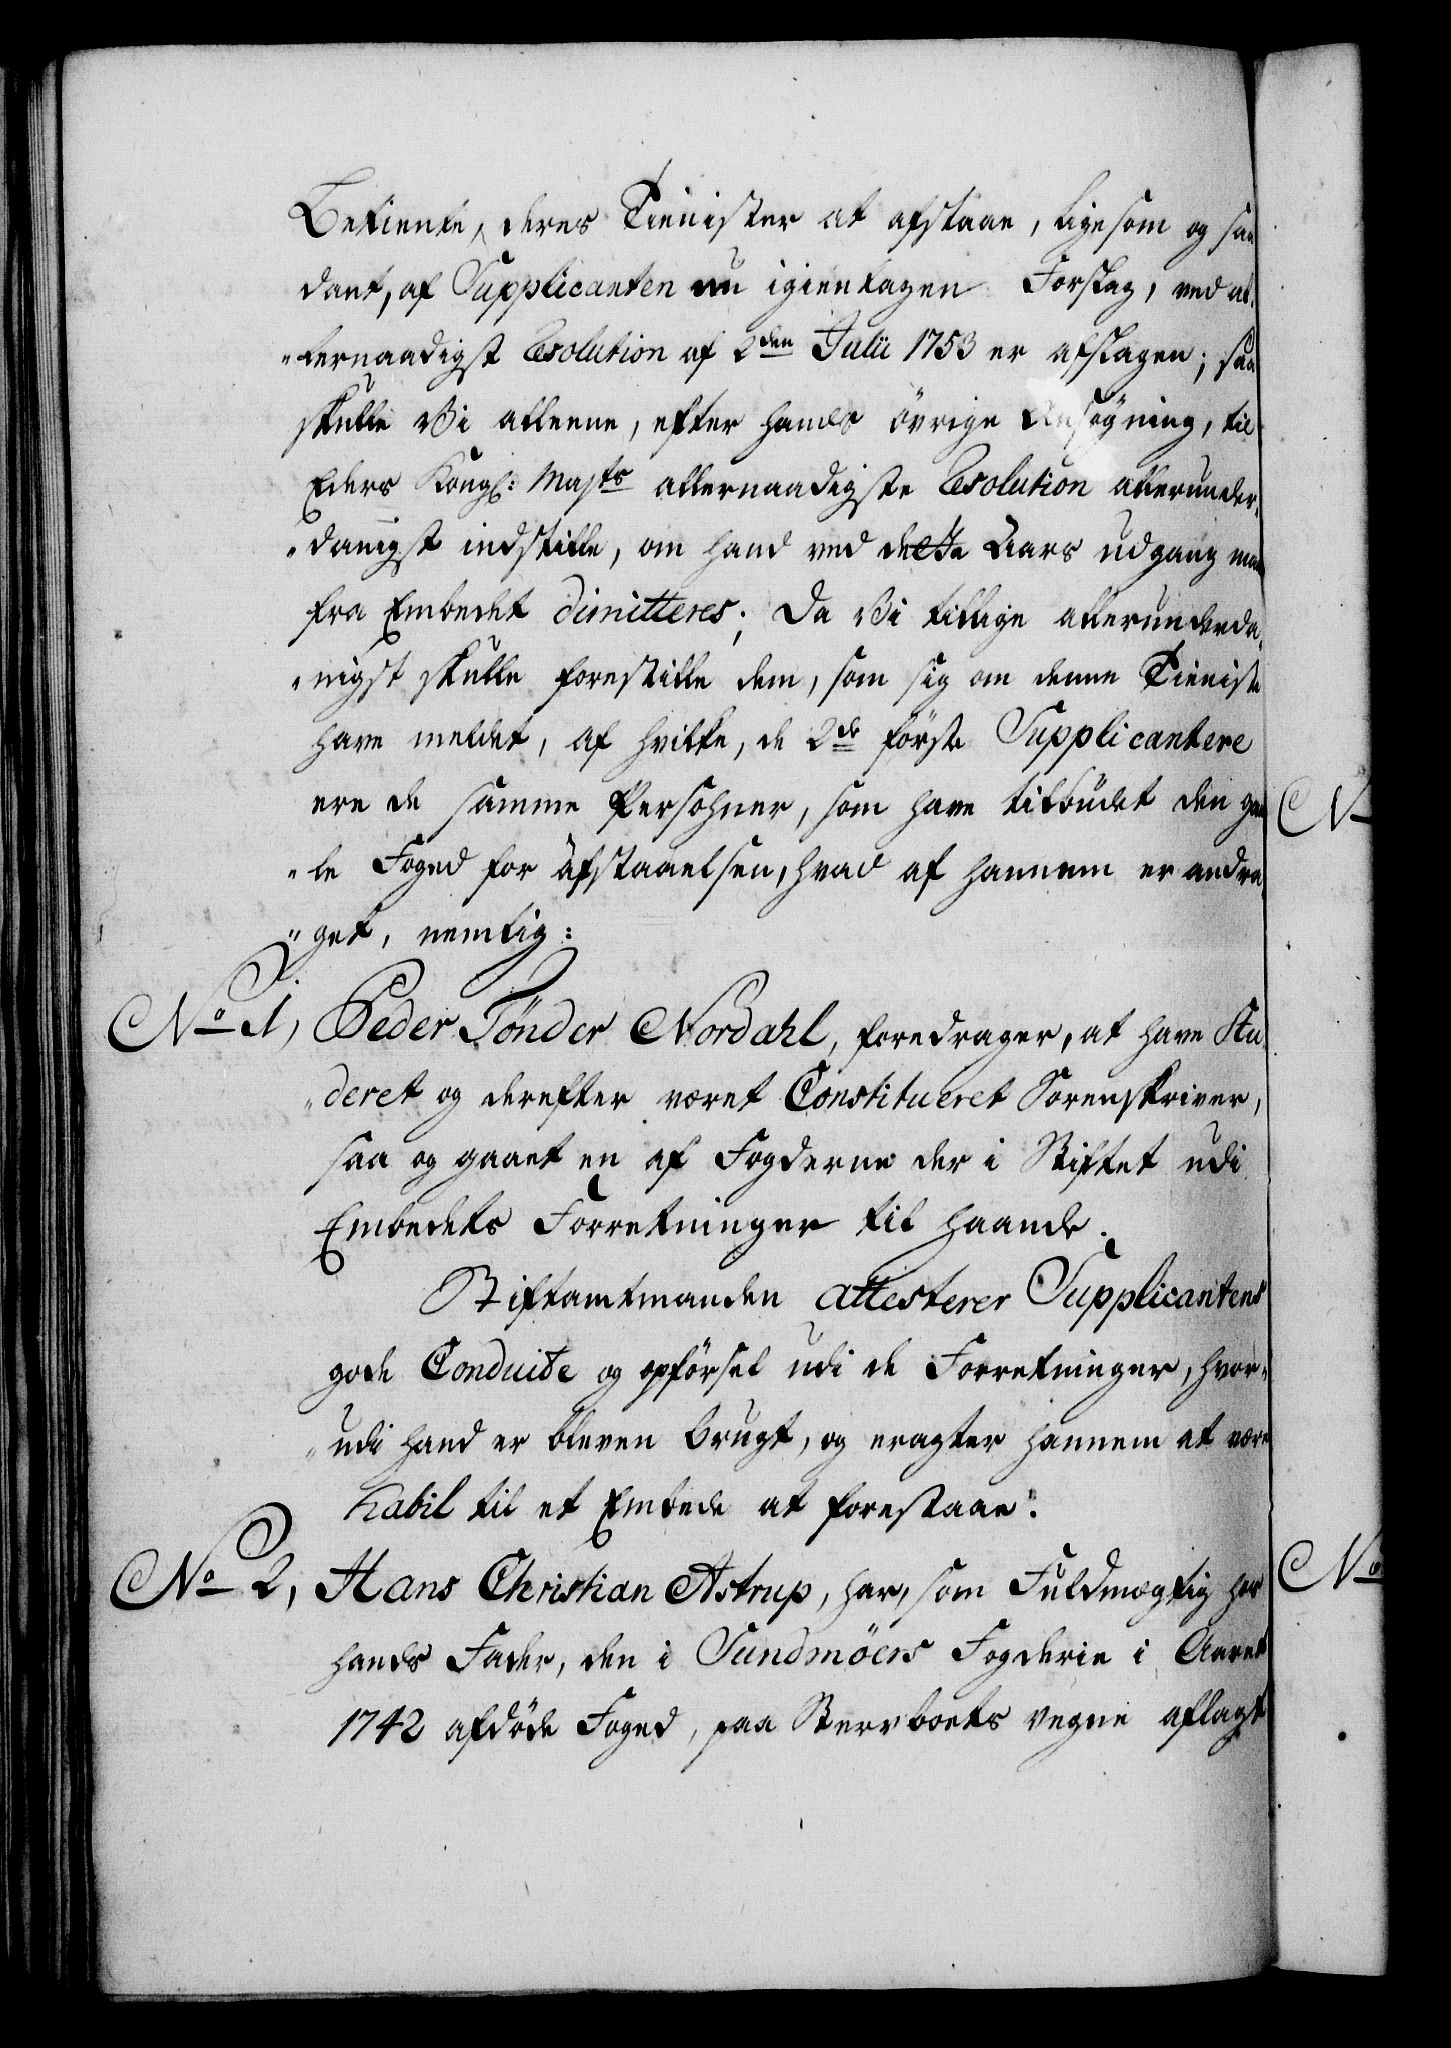 Betiente, deres Tienister at afstaae, ligesom og saa
dant, af Supplicanten nu igientagen Forslag, ved al„
„lernaadigst Resolution af 2den Julii 1753 er afslagen; saa
skulle Vi alleene, efter hands øvrige Ansøgning, til
Eders Kongl: Majts allernaadigste Resolution allerunder„
„danigst indstille, om hand ved dette Aars udgang maa
fra Embedet dimitteres; Da Vi tillige allerunderda„
„nigst skulle forestille dem, som sig om denne Tieniste
have meldet, af hvilke, de 2de første Supplicantere
ere de samme Persohner, som have tilbudet den gam
„le Foged for afstaaelsen, hvad af hannem er andra„
„get, nemlig:
No 1, Peder Tønder Nordahl, foredrager, at have Stu„
„deret og derefter været Constitueret Sorenskriver,
saa og gaaet en af Fogderne der i Stiftet udi
Embedets Forretninger til haande.
Stiftamtmanden attesterer Supplicantens
gode Conduite og opførsel udi de Forretninger, hvor„
„udi hand er bleven brugt, og eragter hannem at være
habil til et Embede at forestaae.
No 2, Hans Christian Astrup, har, som Fuldmægtig hos
hands Fader, den i Sundmøers Fogderie i Aaret
1742 afdøde Foged, paa Stervboets vegne aflagt
N
No